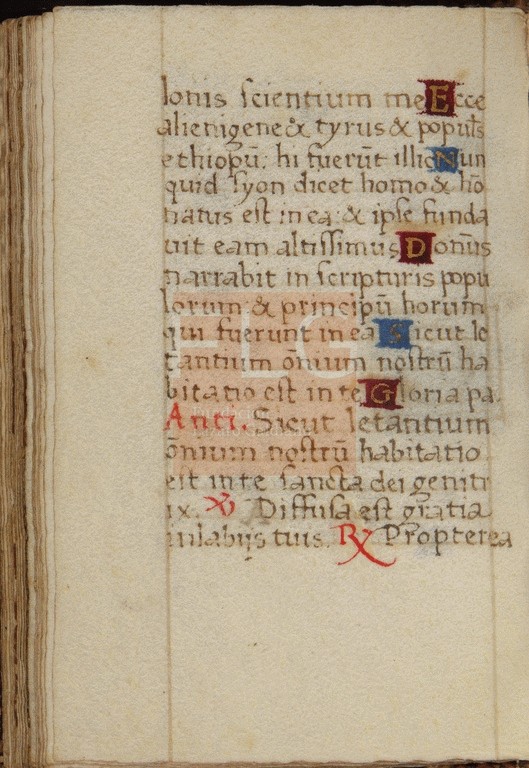 lonis scientium me Ecce
alienigene & tyrus & populꝰ
ethiopũ: hi fuerũt illic Nun
quid syon dicet homo & hõ
natus est in ea: & ipse funda
uit eam altissimus Domũs
narrabit in scripturis popu
lorum: & principũ horum
qui fuerunt in ea Sicut le
tantium õnium nostrũ ha
bitatio est in te Gloria pa.
Anti. Sicut letantium
õnium nostrũ habitatio
est in te sancta dei genitr
ix. ℣ Diffusa est gratia
in labijs tuis. ℟ Propterea